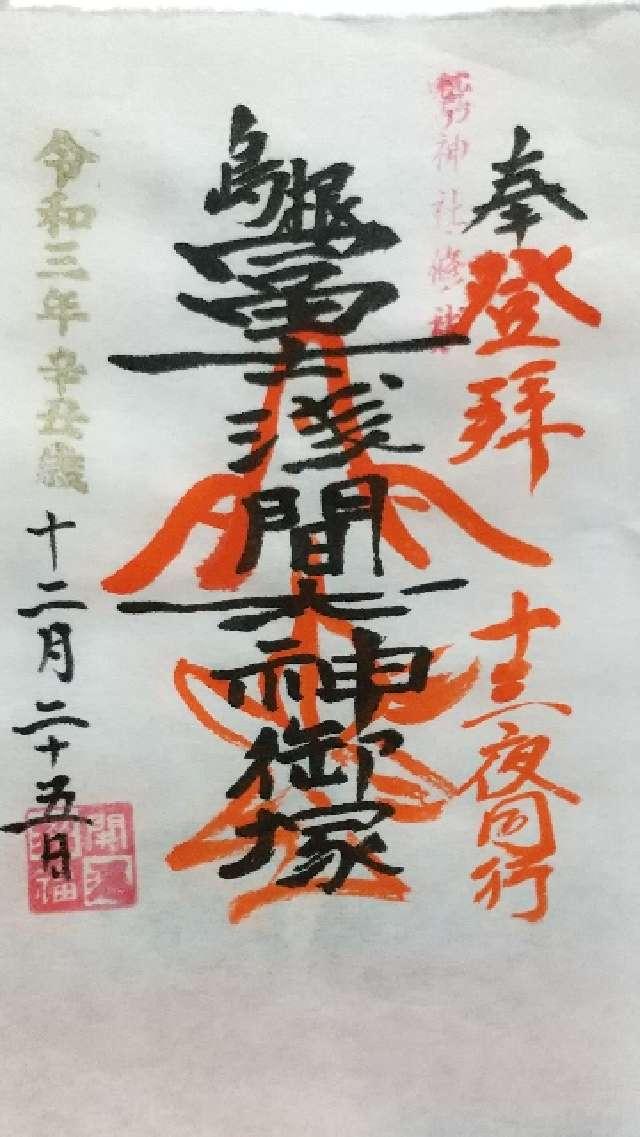 奉登拝 十三夜同行
鷲神社
島根冨士浅間大神御塚
令和三年辛丑歳
十二月二十五日
開運
招福